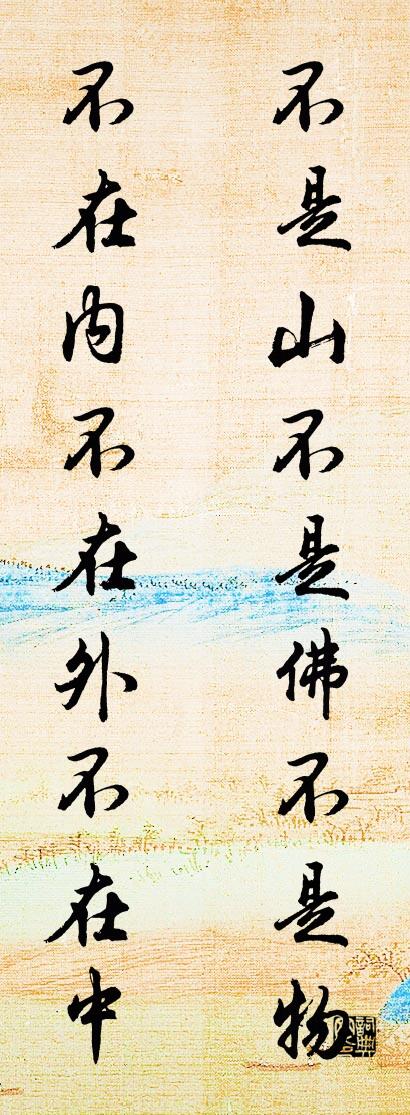 不是山不是佛不是物
不在内不在外不在中